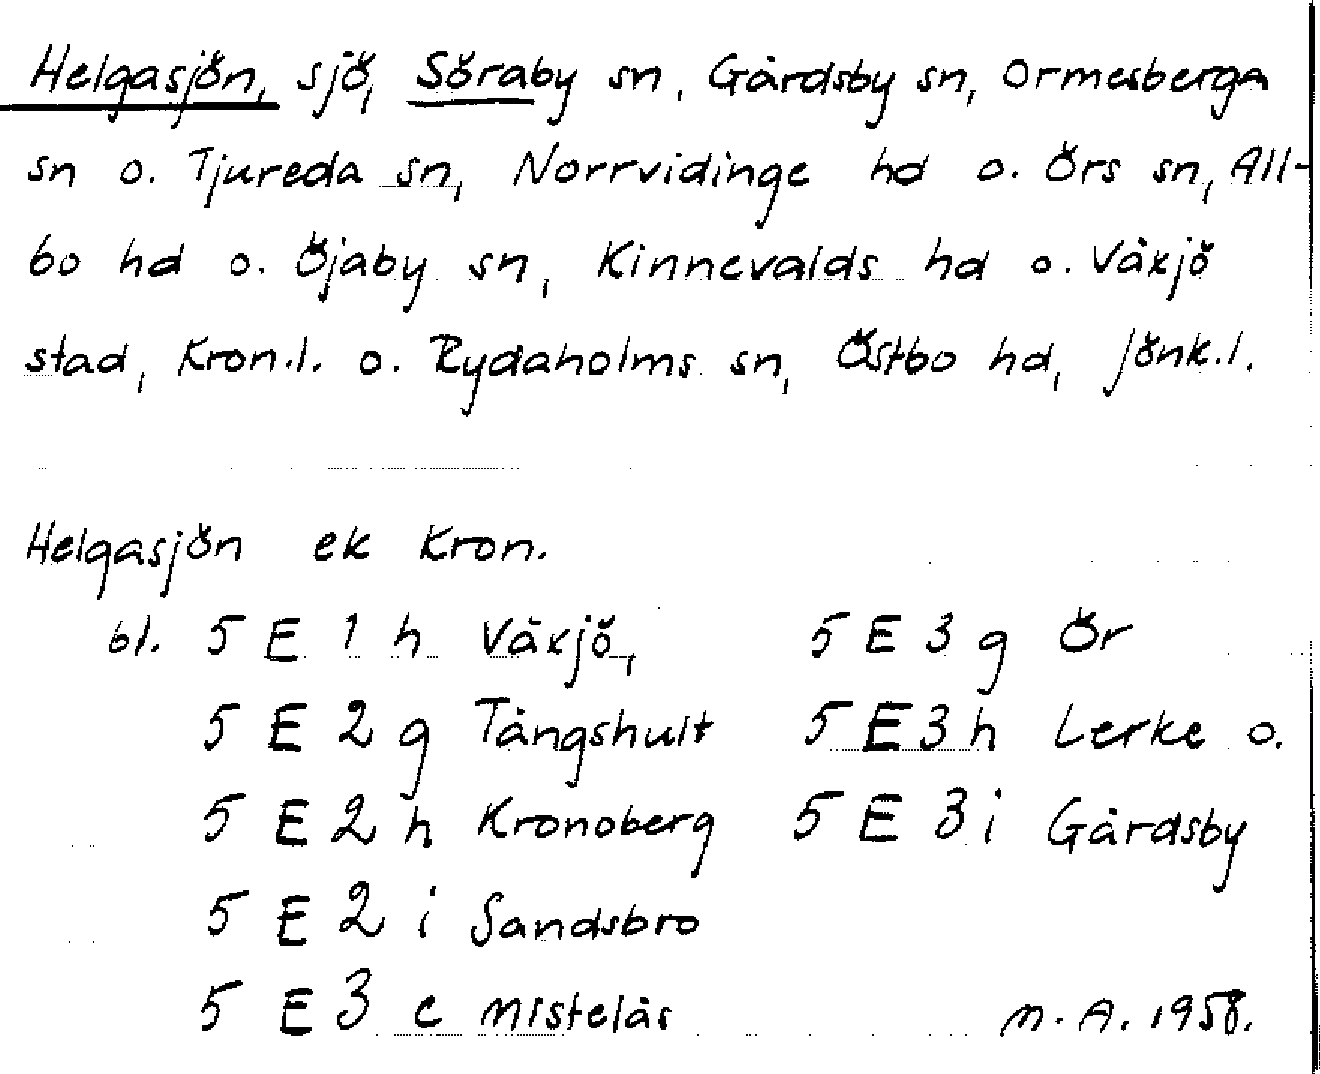 Helgasjön, sjö, Söraby sn, Gårdsby sn, Ormesberga
sn o. Tjureda sn, Norrvidinge hd o. Örs sn, All-
bo hd o. Öjaby sn, Kinnevalds hd o. Växjö
stad, Kron.l. o. Rydaholms sn, Östbo hd, Jönk.l.
Helgasjön ek Kron.
bl. 5 E 1 h Växjö, 5 E 3 g Ör
5 E 2 g Tångshult 5 E 3 h Lerke o.
5 E 2 h Kronoberg 5 E 3 i Gårdsby
5 E 2 i Sandsbro
5 E 3 c Mistelås M.A. 1958.